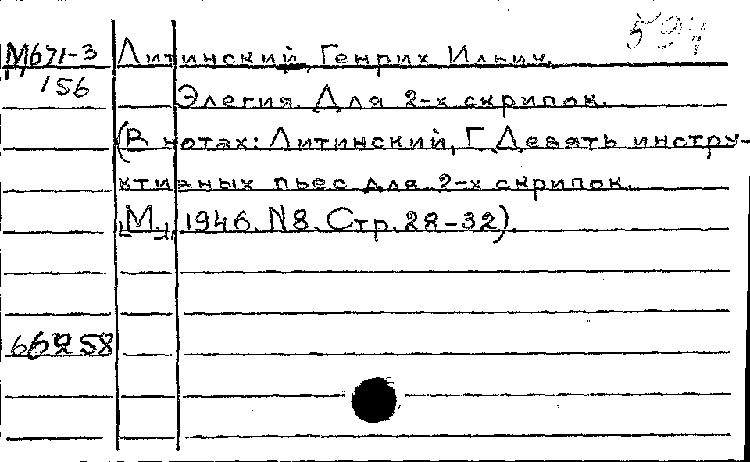 594
М671-3 Литинский, Генрих Ильич.
156 Элегия. Для 2-х скрипок.
(В нотах: Литинский, Г. Девять инстру-
ктивных пьес для 2-х скрипок.
[М.], 1946. N8. Стр. 28-32).
66258